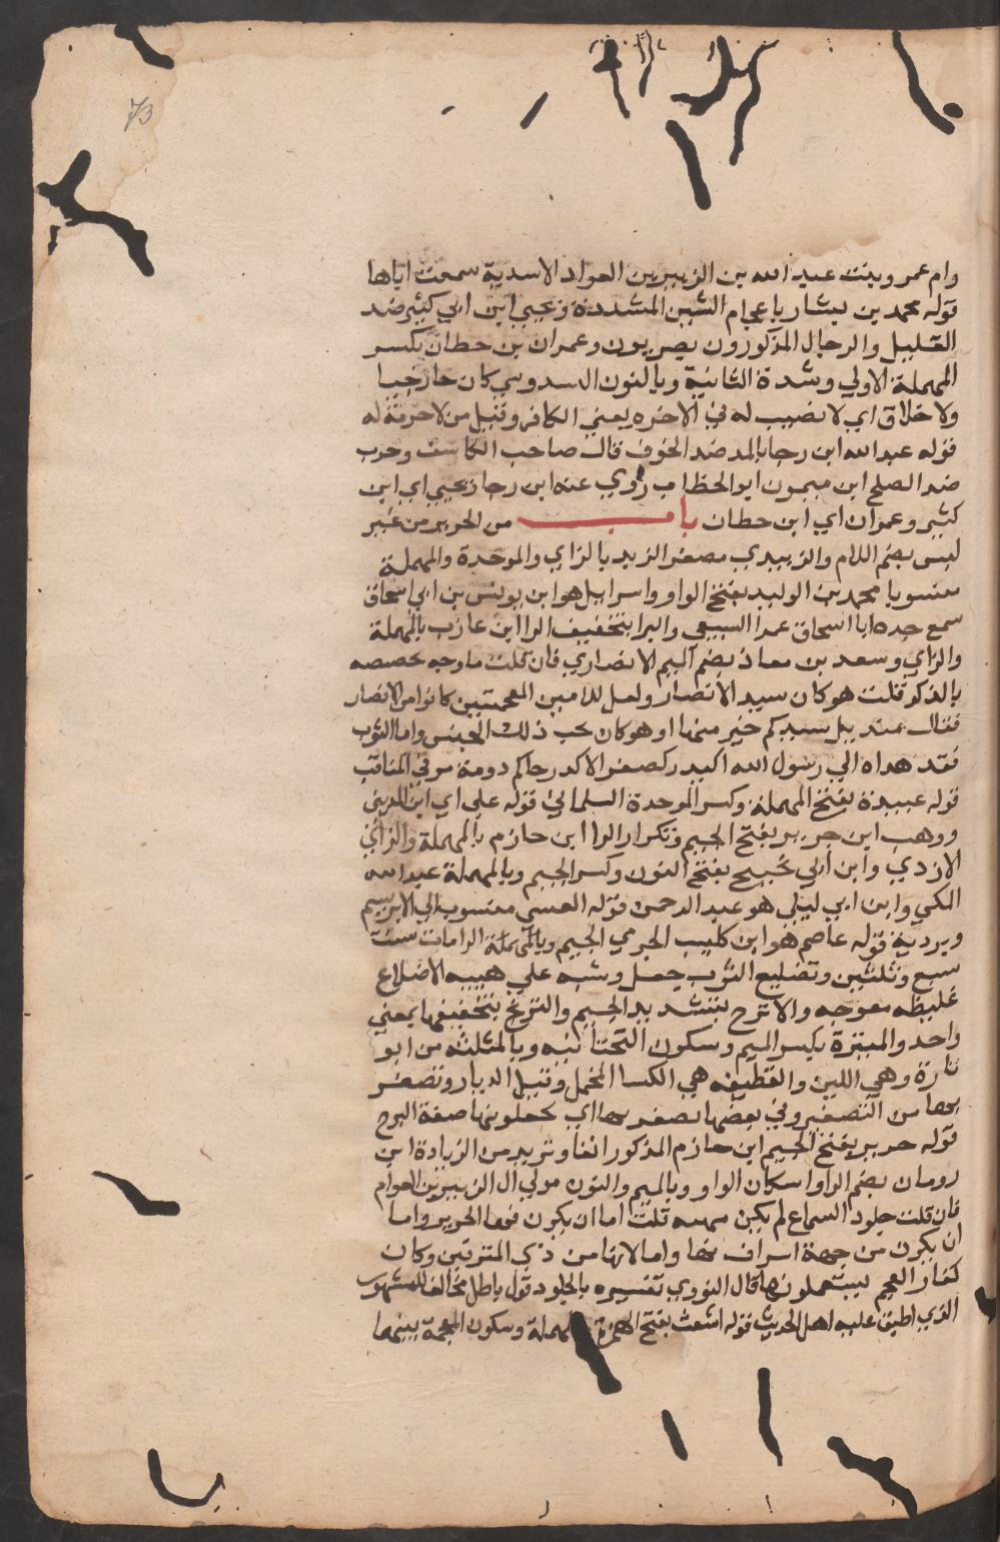 73
وام عمرو بنت عبد الله بن الزبير بن العواد الاسدية سمعت اباها
قوله محمد بن بشار باعجام الشين المشددة ويحيى ابن ابي كثير ضد
القليل والرجال المذكورون بصريون وعمران بن حطان بكسر
المهملة الاولي وشدة الثانية وبالنون السدوسي كان خارجيا
ولا خلاق اي لا نصيب له في الاخره يعني الكافر وقيل من لا حرمة له
قوله عبد الله ابن رجا بالمد ضد الخوف قال صاحب الكاشف وحرب
ضد الصلح ابن ميمون ابو الخطاب روي عنه ابن رجا ويحيي اي ابن
كثير وعمران اي ابن حطان باب من الحرير من غير
لبس بضم اللام والزبيدي مصغر الزبد بالزاي والموحدة والمهملة
منسوبا محمد بن الوليد بفتح الواو واسراييل هو ابن يونس بن ابي اسحاق
سمع جده ابا اسحاق عمرا السبيعي والبرا بتخفيف الرا ابن عازب بالمهملة
والزاي وسعد بن معاذ بضم الميم الانصاري فان قلت ما وجه تخصيصه
بالذكر قلت هو كان سيد الانصار ولعل للامسين المعجبين كانوا من الانصار
فقال منديل سيدكم خير منها او هو كان يحب ذلك الجنس واما الثوب
فقد هداه الي رسول الله اكيدر كصغر الاكدر حاكم دومة مر في المناقب
قوله عبيدة بفتح المهملة وكسر الموحدة السلماني قوله علي اي ابن المديني
ووهب ابن جرير بفتح الجيم وتكرار الرا ابن حازم بالمهملة والزاي
الازدي وابن ابي نجيح بفتح النون وكسر الجيم وبالمهملة عبد الله
المكي وابن ابي ليلي هو عبد الرحمن قوله القسي منسوب الي الابريسم
ويرديه قوله عاصم هو ابن كليب الجرمي الجيم وبالمهملة الرامات سنت
سبع وثلثين وتضليع الثوب جعل وشيه علي هييه الاضلاع
غليظه معوجه والاترج بتشديد الجيم والترنج بتخفيفها بمعني
واحد والميثرة بكسر الميم وسكون التحتانيه وبالمثلثه من ابو
ثارة وهي اللين والقطيفه هي الكسا المخمل وقيل الديار وتصغر
بها من التصغير وفي بعضها يصفر بها اي يجعلونها صفة السرج
قوله جرير بفتح الجيم ابن حازم المذكور انفا ويزيد من الزيادة ابن
رومان بضم الرا واسكان الواو وبالميم والنون مولي ال الزبير بن العوام
فان قلت جلود السماع لم يكن منهيه قلت اما ان يكون فيها الحرير واما
ان يكون من جهة اسراف فيها واما لانها من ذي المترفين وكان
كفار العجم يستعملونها قال النووي تفسيره بالجلود قول باطل مخالف للمشهور
الذي اطبق عليه اهل الحديث قوله اشعث بفتح الهمزة المهملة وسكون المعجمة بينهما